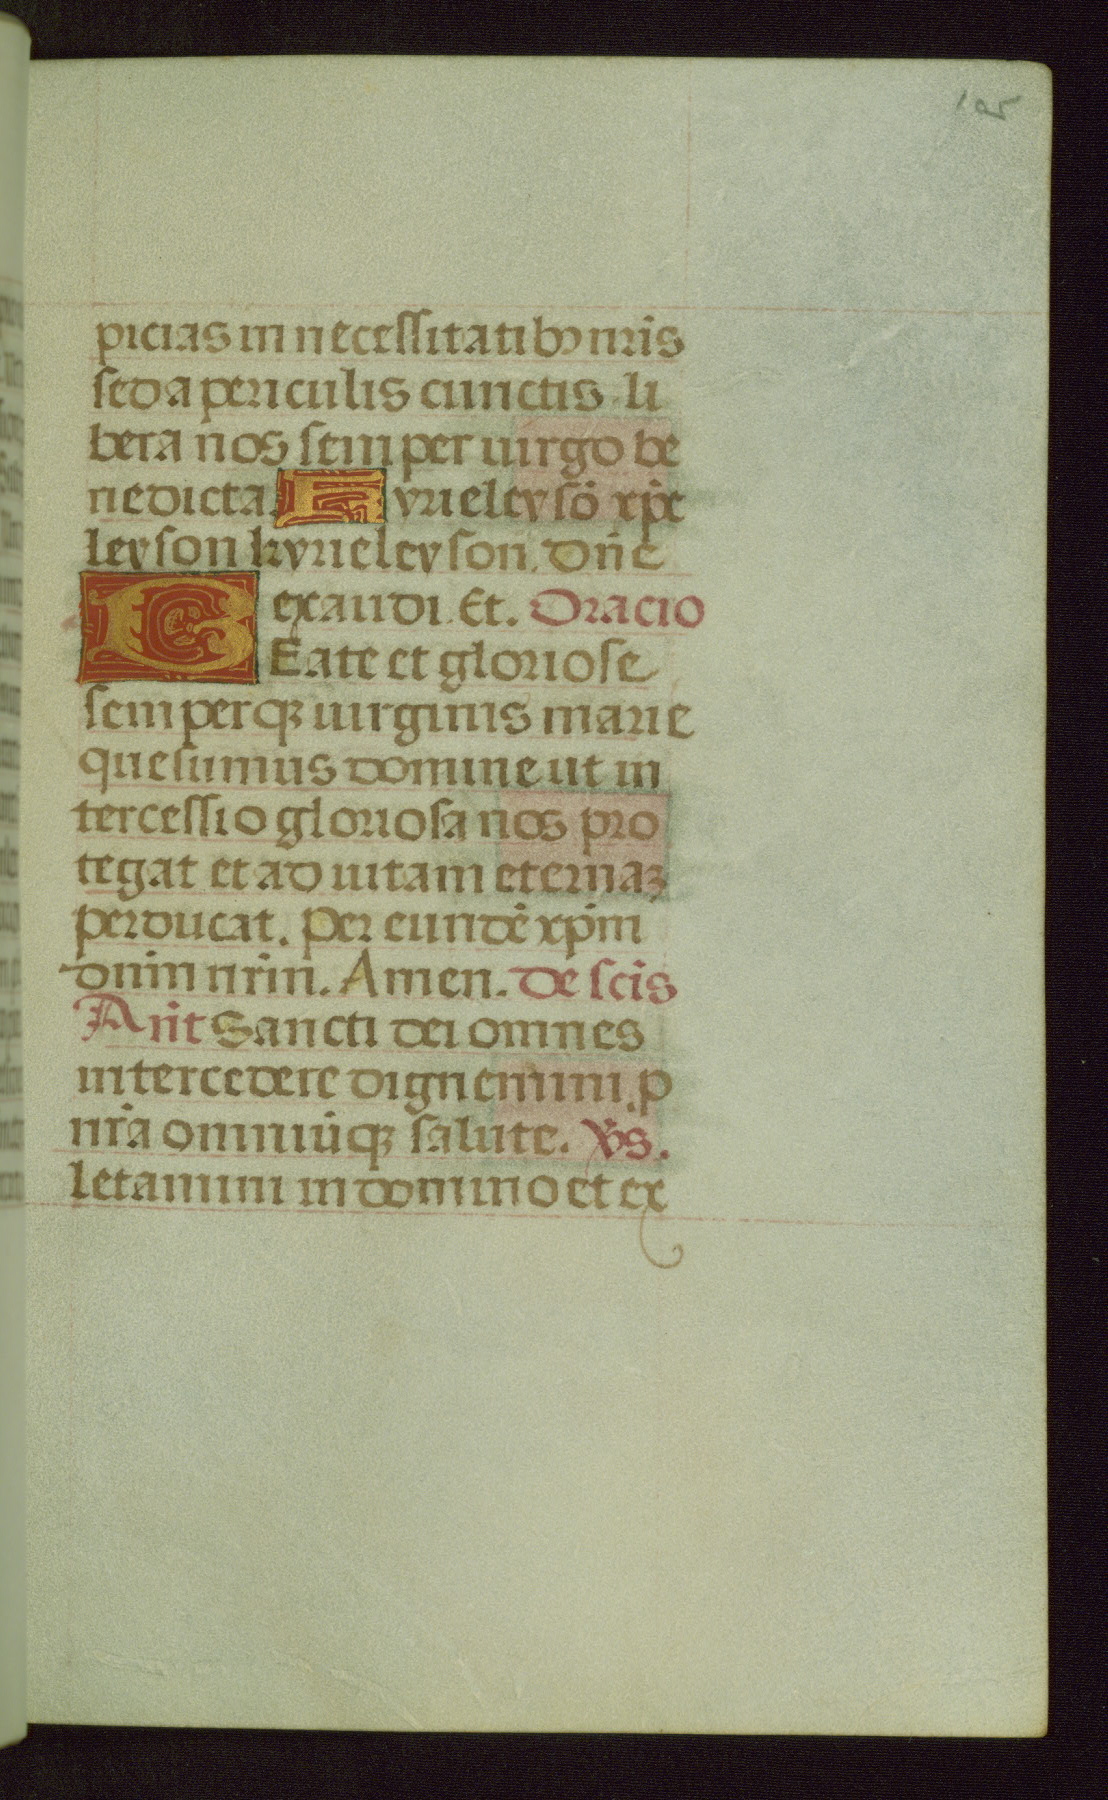 105
picias in necessitatibꝫ nr̃is
sed a periculis cunctis li
bera nos semper uirgo be
nedicta. Kyrieleysõ xp̃e
leyson kyrieleyson. Dñe
exaudi. Et. Oracio
BEate et gloriose
semperqꝫ uirginis marie
quesumus domine ut in
tercessio gloriosa nos pro
tegat et ad uitam eternaꝫ
perducat. Per eundẽ xp̃m
dnm̃ nr̃m. Amen. De sc̃is
Añt Sancti dei omnes
intercedere dignemini p
nr̃a omniũqꝫ salute. Vs̃.
letamini in domino et ex